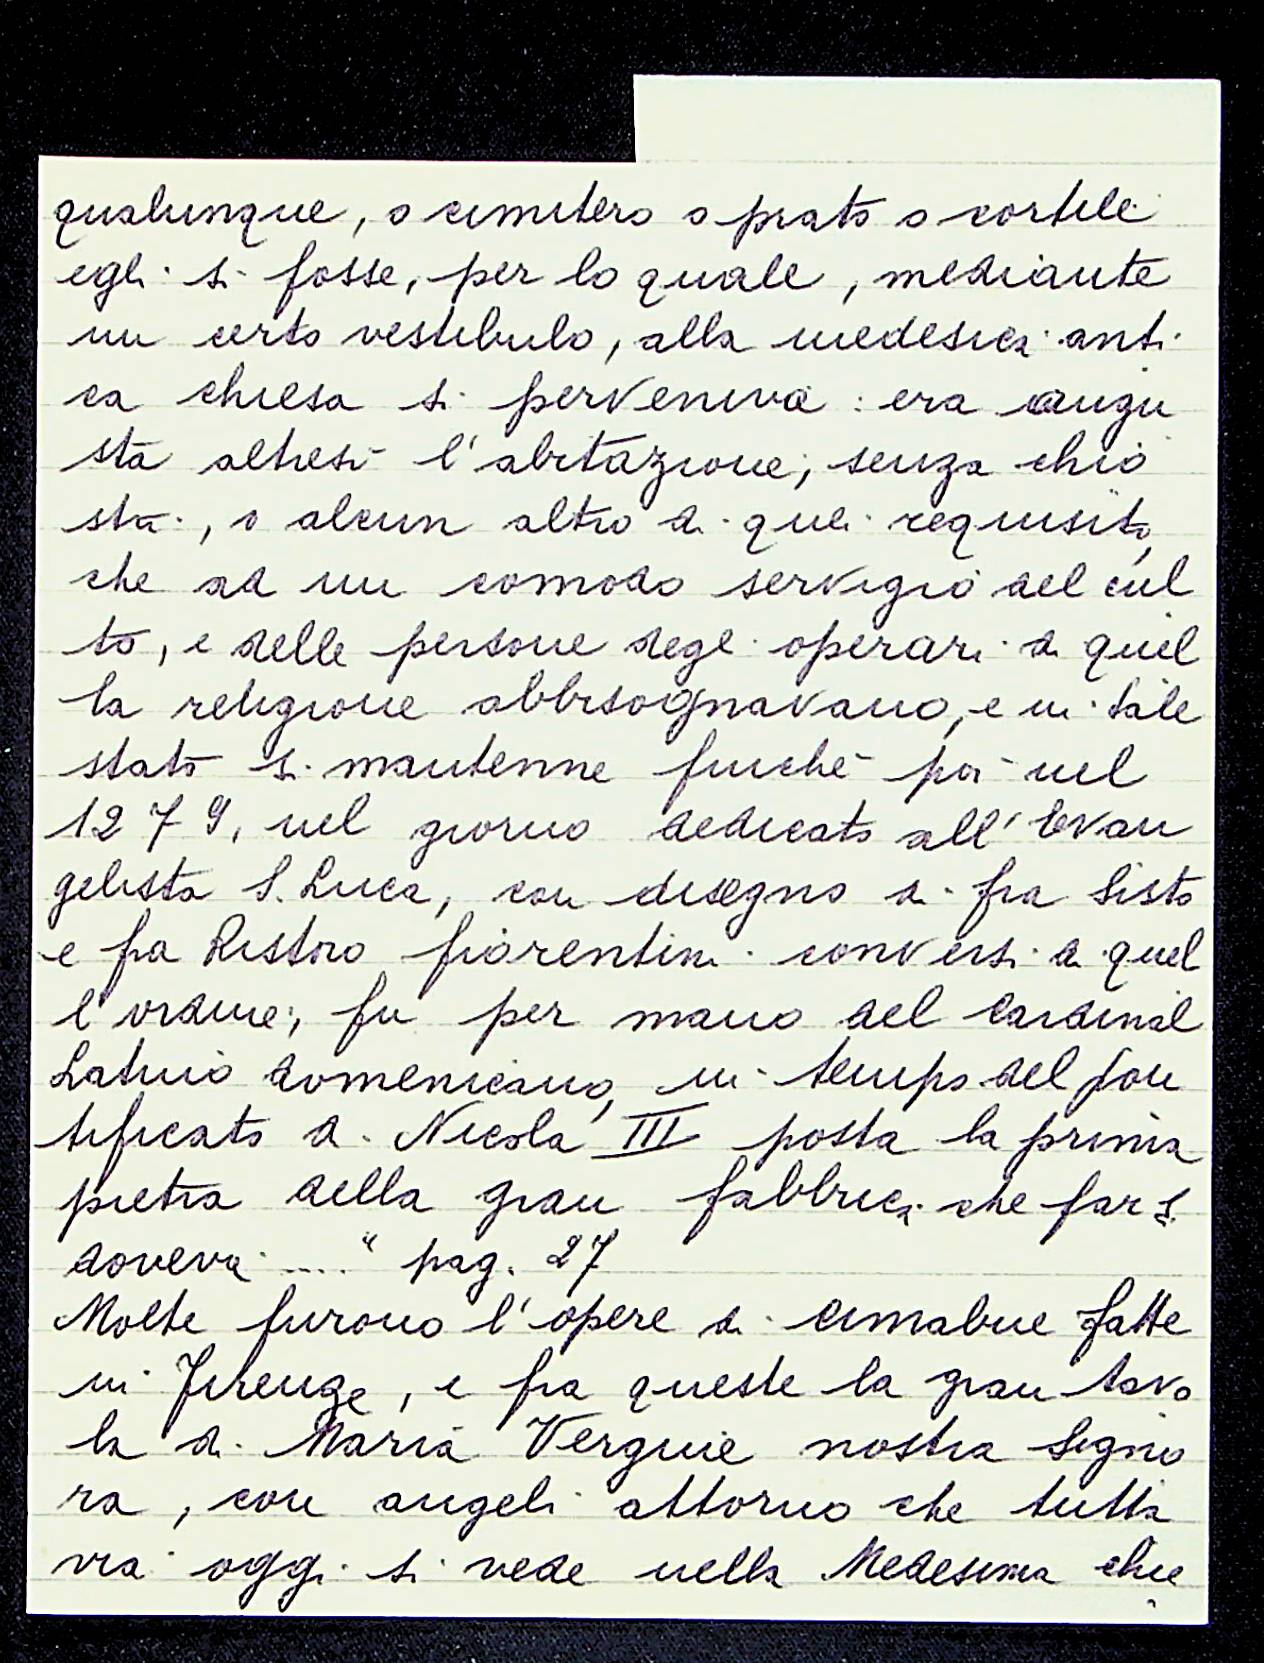 qualunque, o cimitero o prato o cortile
egli si fosse, per lo quale, mediante
un certo vestibulo, alla medesica anti
ca chiesa si perveniva: era angu
sta altresì l'abitazione, senza chio
stri, o alcun altro di quei requisiti,
che ad un comodo servigio del cul
to, e delle persone degl operari di quel
la religione abbisognavano, e in tale
stato si mantenne finché poi nel
1279, nel giorno dedicato all'Evan
gelista S. Luca, con disegno di fra Sisto
e fra Ristoro fiorentini conversi di quel
l'ordine, fu per mano del Cardinal
Latino domenicano, in tempo del pon
tificato di Nicola III posta la prima
pietra della gran fabbrica che far si
doveva ...." pag. 27
Molte furono l'opere di Cimabue fatte
in Firenze, e fra queste la gran tavo
la di Maria Vergine nostra Signo
ra, con angeli attorno che tutta
via oggi si vede nella Medesima chie